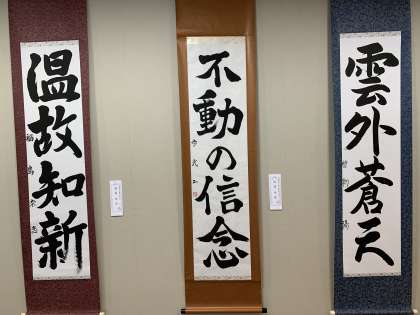 雲外蒼天
不動の信念
温故知新